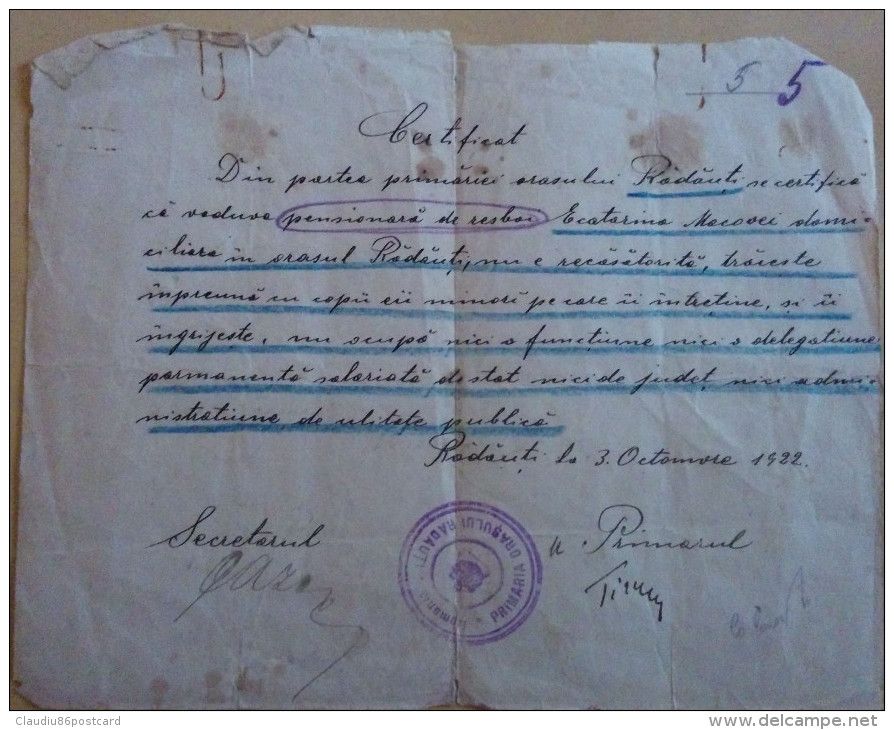 5 5
Certificat
Din partea primăriei orasului Rădăuți se certifică
că vaduva pensionară de resboi Ecatarina Macovei domi-
ciliara în orasul Rădăuți, nu e recăsătorită, trăieste
împreună cu copii eii minori pe care îi întreține, și îi
îngrijeste, nu ocupă nici o funcțiune nici o delegatiune
parmanentă salariată de stat nici de județ, nici admi-
nistratiune de ulitate publică
Rădăuți la 3. Octomvre 1922.
Secretarul p. Primarul
PRIMARIA ORAȘULUI RADAUȚI
Claudiu86postcard www.delcampe.net